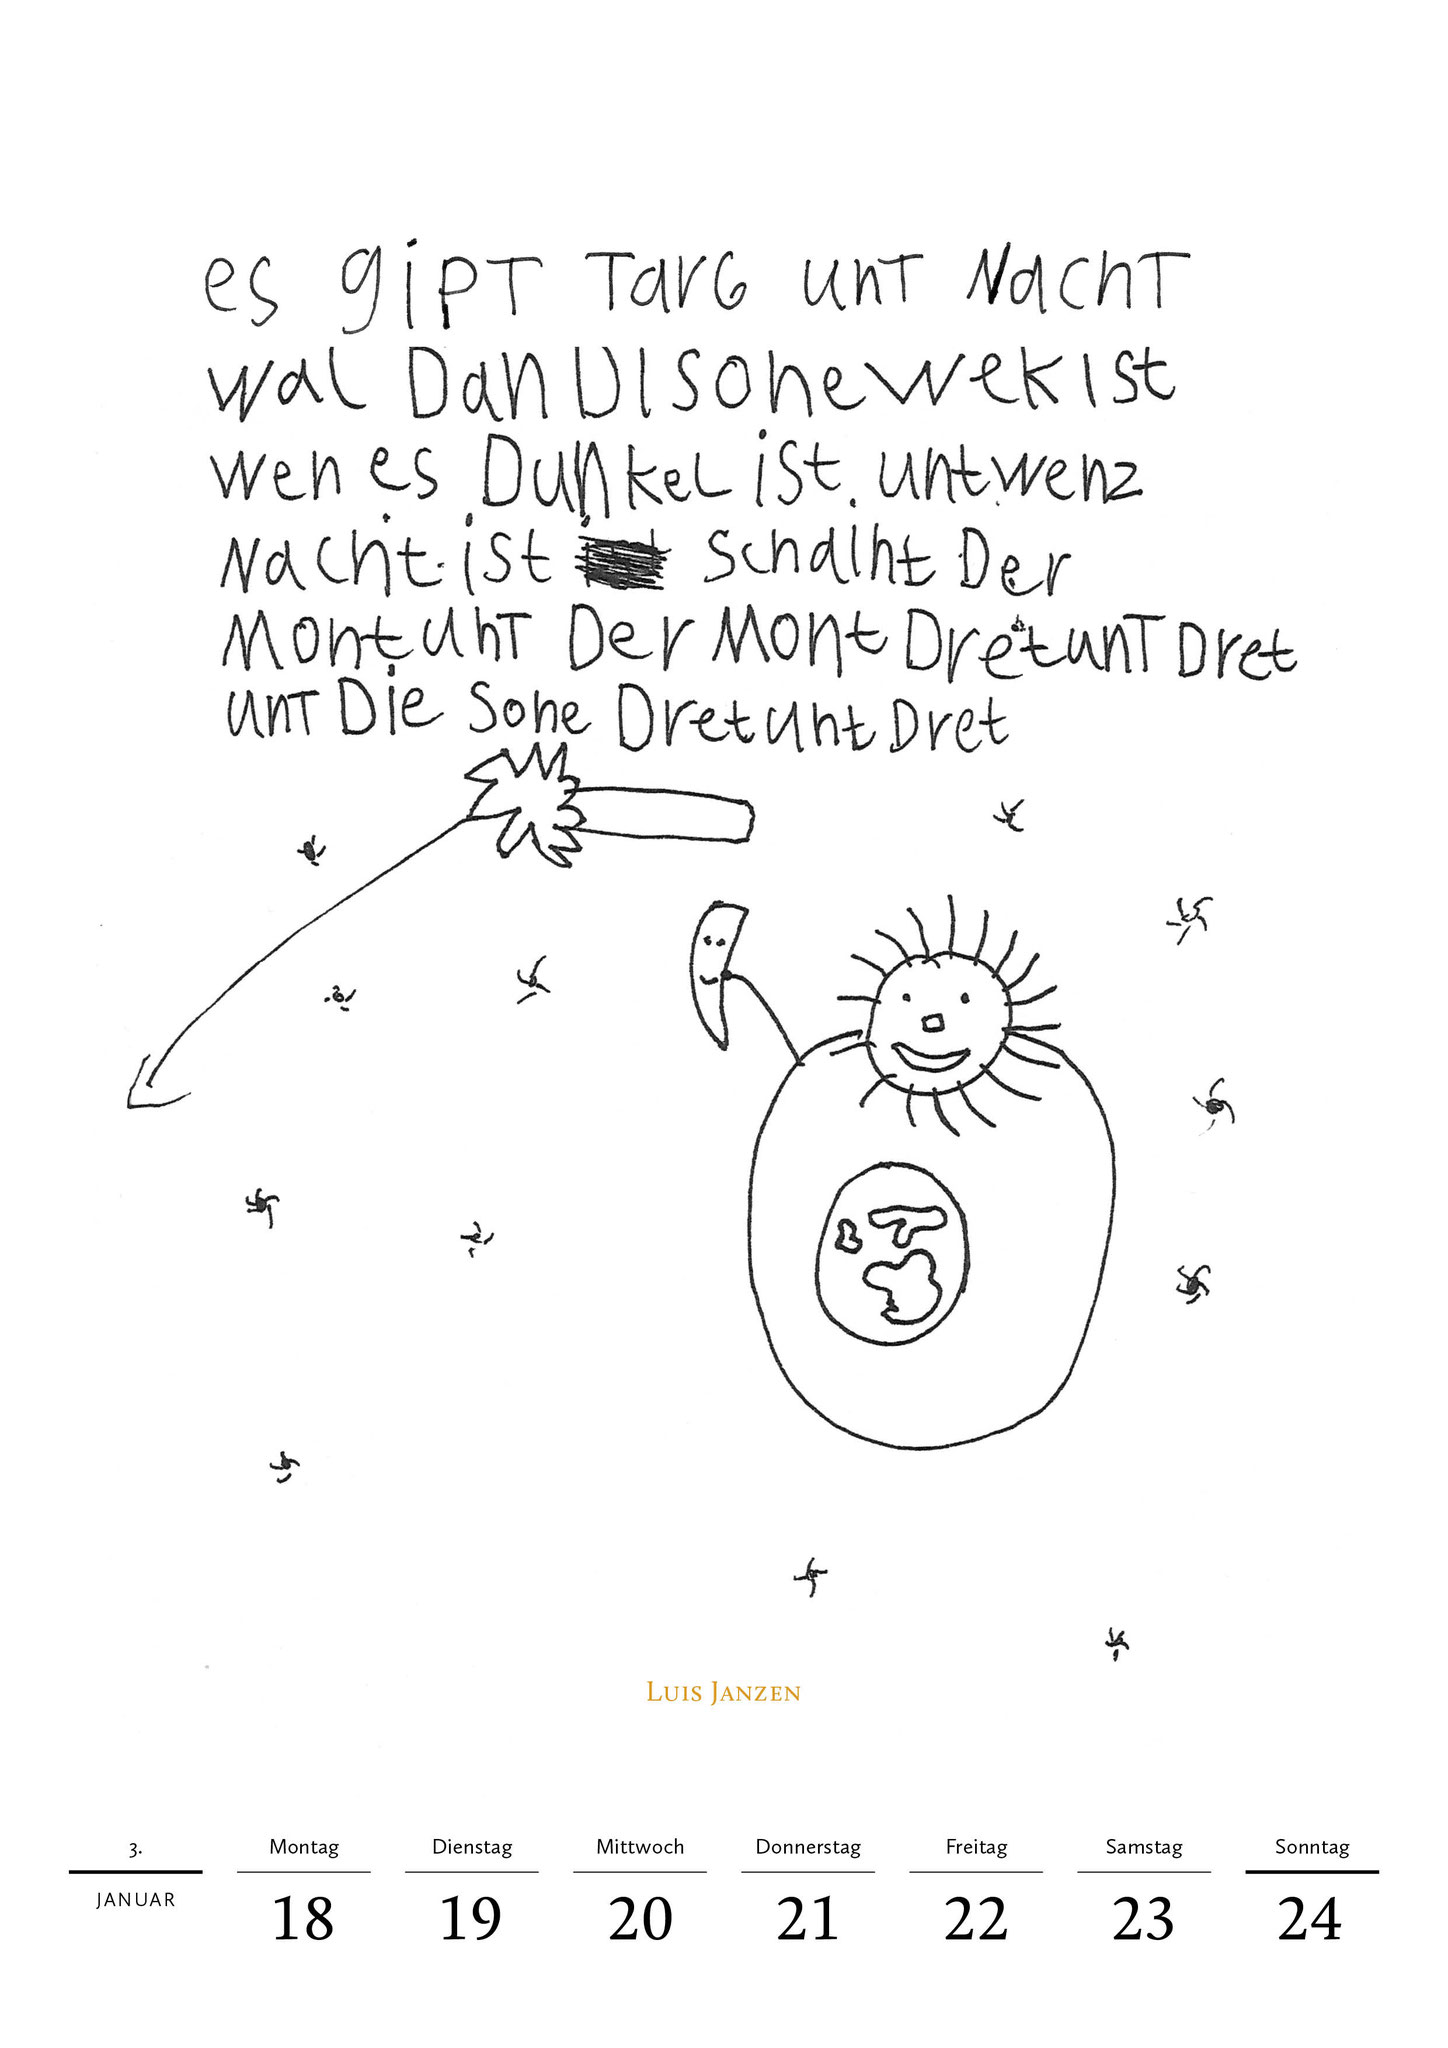 es gipT TarG unT NachT
wal Dan DI sone wek Ist
wen es Dunkel ist. unt wenz
Nacht. ist schaint Der
Mont unT Der Mont Dret unT Dret
unT Die Sone Dret unt Dret
Luis Janzen
3. Montag Dienstag Mittwoch Donnerstag Freitag Samstag Sonntag
JANUAR 18 19 20 21 22 23 24